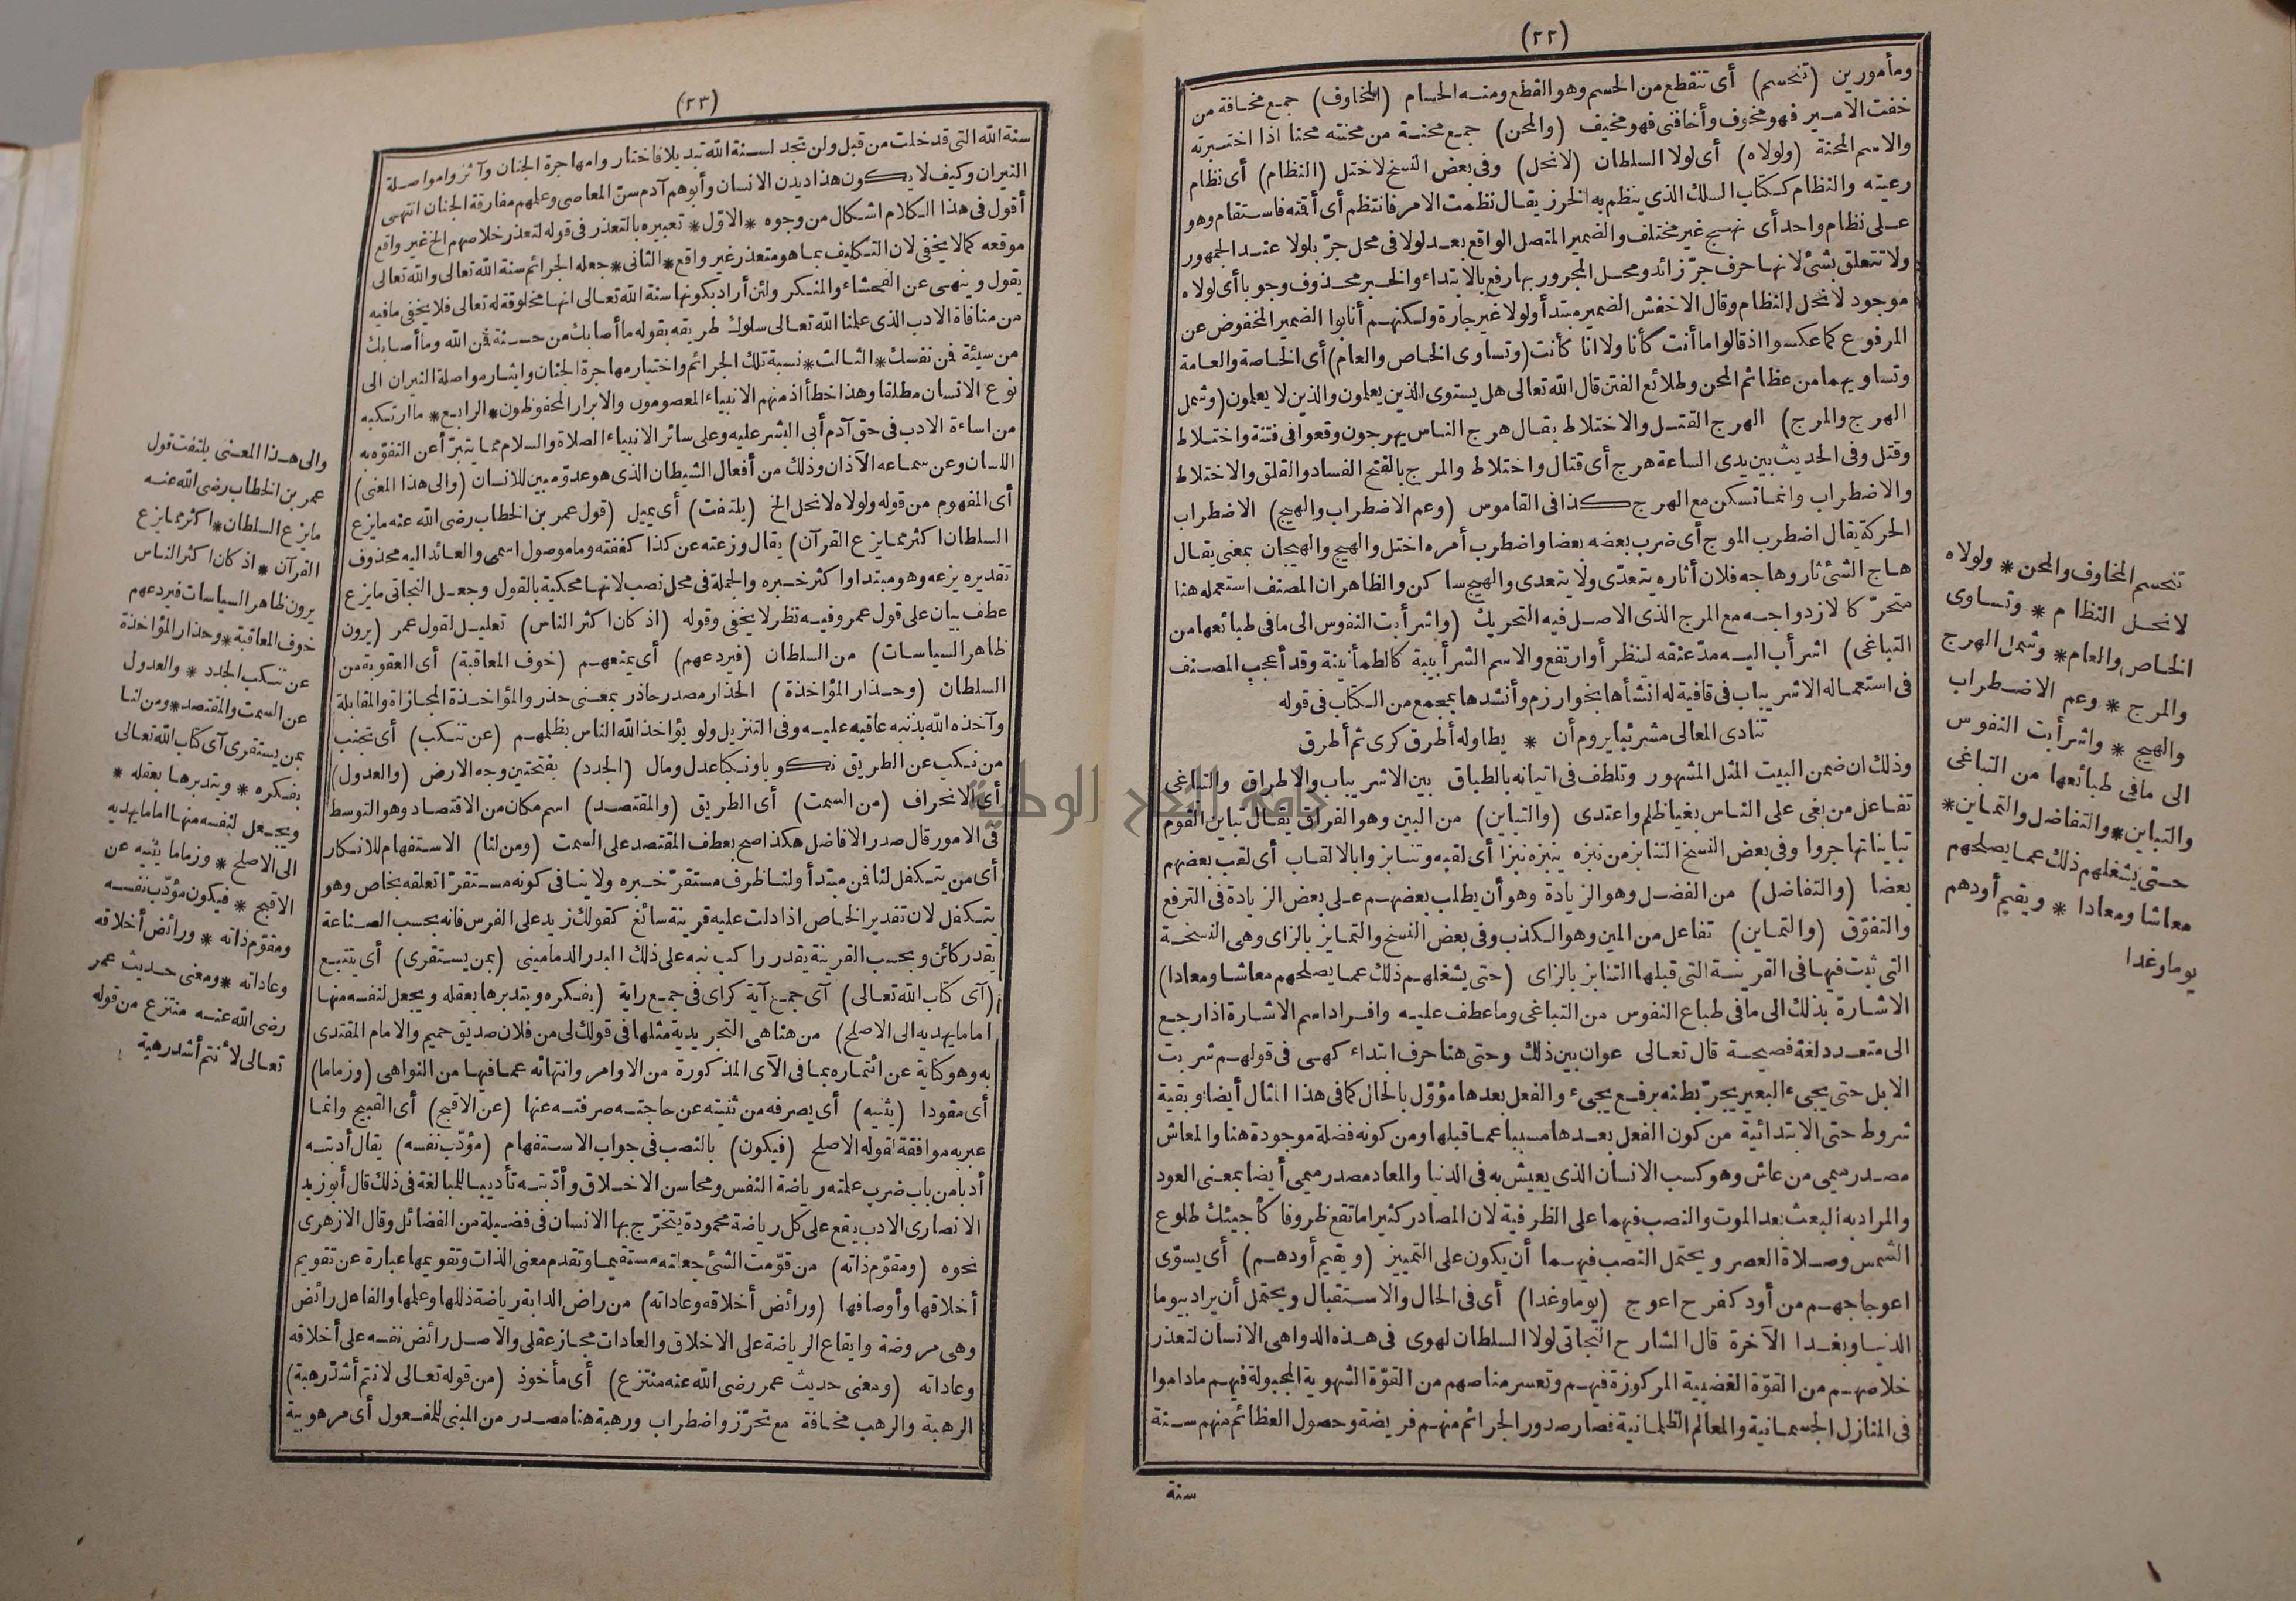 (٢٢)
ومأمورين (تنحسم) أى تنقطع من الحسم وهو القطع ومنه الحسام (المخاوف) جمع مخافة من
خفت الامير فهو مخوف وأخافنى فهو مخيف (والمحن) جمع محنة من محنته محنا اذا اختبرته
والاسم المحنة (ولولاه) أى لولا السلطان (لانحل) وفى بعض النسخ لاختل (النظام) أى نظام
رعيته والنظام ككتاب السلك الذى ينظم به الخرز يقال نظمت الامر فانتظم أى أقته فاستقام وهو
على نظام واحد أى نهج غير مختلف والضمير المتصل الواقع بعد لولا فى محل جرّ بلولا عند الجمهور
ولا تتعلق بشئ لانها حرف جرّ زائد ومحل المجرور بها رفع بالابتداء والخبر محذوف وجوبا أى لولاه
موجود لانحل النظام وقال الاخفش الضمير مبتدأ ولولا غير جارة ولكنهم أنابوا الضمير المخفوض عن
المرفوع كما عكسوا اذ قالوا ما أنت كأنا ولا انا كأنت (وتساوى الخاص والعام) أى الخاصة والعامة
وتساويهما من عظائم المحن وطلائع الفتن قال الله تعالى هل يستوى الذين يعلمون والذين لا يعلمون (وشمل
الهرج والمرج) الهرج القتل والاختلاط يقال هرج الناس يهرجون وقعوا فى فتنة واختلاط
وقتل وفى الحديث بين يدى الساعة هرج أى قتال واختلاط والمرج بالفتح الفساد والقلق والاختلاط
والاضطراب وانما تسكن مع الهرج كذا فى القاموس (وعم الاضطراب والهيج) الاضطراب
الحركة يقال اضطرب الموج أى ضرب بعضه بعضا واضطرب أمره اختل والهيج والهيجان بمعنى يقال
هاج الشئ ثار وهاجه فلان أثاره يتعدّى ولا يتعدى والهيج ساكن والظاهر ان المصنف استعمله هنا
متحرّكا لازدواجه مع المرج الذى الاصل فيه التحريك (واشرأبت النفوس الى ما فى طبائعها من
التباغى) اشرأب اليه مدّ عنقه لينظر أو ارتفع والاسم الشرأبيبة كالطمأنينة وقد أعجب المصنف
فى استعماله الاشرئباب فى قافية له انشأها بخوارزم وأنشدها بمجمع من الكتاب فى قوله
تنادى المعالى مشرئبا يروم أن * يطاوله أطرق كرى ثم أطرق
وذلك ان ضمن البيت المثل المشهور وتلطف فى اتيانه بالطباق بين الاشرئباب والاطراق والتباغى
تفاعل من بغى على الناس بغيا ظلم واعتدى (والتباين) من البين وهو الفراق يقال تباين القوم
تباينا تهاجروا وفى بعض النسخ التنابز من نبزه ينبزه نبزا أى لقبه وتنابزوا بالالقاب أى لقب بعضهم
بعضا (والتفاضل) من الفضل وهو الزيادة وهو أن يطلب بعضهم على بعض الزيادة فى الترفع
والتفوّق (والتماين) تفاعل من المين وهو الكذب وفى بعض النسخ والتمايز بالزاى وهى النسخة
التى ثبت فيها فى القرينة التى قبلها التنابز بالزاى (حتى يشغلهم ذلك عما يصلحهم معاشا ومعادا)
الاشارة بذلك الى ما فى طباع النفوس من التباغى وما عطف عليه وافراد اسم الاشارة اذا رجع
الى متعدد لغة فصيحة قال تعالى عوان بين ذلك وحتى هنا حرف ابتداء كهى فى قولهم شربت
الابل حتى يجىء البعير يجرّ بطنه برفع يجىء والفعل بعدها مؤوّل بالحال كما فى هذا المثال أيضا وبقية
شروط حتى الابتدائية من كون الفعل بعدها مسببا عما قبلها ومن كونه فضلة موجودة هنا والمعاش
مصدر ميمى من عاش وهو كسب الانسان الذى يعيش به فى الدنيا والمعاد مصدر ميمى أيضا بمعنى العود
والمراد به البعث بعد الموت والنصب فيهما على الظرفية لان المصادر كثيرا ما تقع ظروفا كأجيئك طلوع
الشمس وصلاة العصر ويحتمل النصب فيهما أن يكون على التمييز (ويقيم أودهم) أى يسوّى
اعوجاجهم من أود كفرح اعوج (يوما وغدا) أى فى الحال والاستقبال ويحتمل أن يراد بيوما
الدنيا وبغدا الآخرة قال الشارح النجاتى لولا السلطان لهوى فى هذه الدواهى الانسان لتعذر
خلاصهم من القوّة الغضبية المركوزة فيهم وتعسر مناصهم من القوّة الشهوية المجبولة فيهم ماداموا
فى المنازل الجسمانية والمعالم الظلمانية فصار صدور الجرائم منهم فريضة وحصول العظائم منهم سنة
سنة
تنحسم المخاوف والمحن * ولولاه
لانحل النظام * وتساوى
الخاص والعام * وشمل الهرج
والمرج * وعم الاضطراب
والهيج * واشرأبت النفوس
الى ما فى طبائعها من التباغى
والتباين * والتفاضل والتماين *
حتى يشغلهم ذلك عما يصلحهم
معاشا ومعادا * ويقيم أودهم
يوما وغدا
(٢٣)
سنة الله التى قد خلت من قبل ولن تجد لسنة الله تبديلا فاختاروا مهاجرة الجنان وآثروا مواصلة
النيران وكيف لا يكون هذا ديدن الانسان وأبوهم آدم سنّ المعاصى وعلمهم مفارقة الجنان انتهى
أقول فى هذا الكلام اشكال من وجوه * الاوّل * تعبيره بالتعذر فى قوله لتعذر خلاصهم الخ غير واقع
موقعه كما لا يخفى لان التكليف بما هو متعذر غير واقع * الثانى * جعله الجرائم سنة الله تعالى والله تعالى
يقول وينهى عن الفحشاء والمنكر ولئن أراد بكونها سنة الله تعالى انها مخلوقة له تعالى فلا يخفى ما فيه
من منافاة الادب الذى علمنا الله تعالى سلوك طريقه بقوله ما أصابك من حسنة فمن الله وما أصابك
من سيئة فمن نفسك * الثالث * نسبة تلك الجرائم واختيار مهاجرة الجنان وايثار مواصلة النيران الى
نوع الانسان مطلقا وهذا خطأ اذ منهم الانبياء المعصومون والابرار المحفوظون * الرابع * ما ارتكبه
من اساءة الادب فى حق آدم أبى البشر عليه وعلى سائر الانبياء الصلاة والسلام مما يتبرّأ عن التفوّه به
اللسان وعن سماعه الآذان وذلك من أفعال الشيطان الذى هو عدوّ مبين للانسان (والى هذا المعنى)
أى المفهوم من قوله ولولاه لانحل الخ (يلتفت) أى يميل (قول عمر بن الخطاب رضى الله عنه ما يزع
السلطان اكثر مما يزع القرآن) يقال وزعته عن كذا كففته وما موصول اسمى والعائد اليه محذوف
تقديره يزعه وهو مبتدا واكثر خبره والجملة فى محل نصب لانها محكية بالقول وجعل النجاتى ما يزع
عطف بيان على قول عمر وفيه نظر لا يخفى وقوله (اذ كان اكثر الناس) تعليل لقول عمر (يرون
ظاهر السياسات) من السلطان (فيردعهم) أى يمنعهم (خوف المعاقبة) أى العقوبة من
السلطان (وحذار المؤاخذة) الحذار مصدر حاذر بمعنى حذر والمؤاخذة المجازاة والمقابلة
وآخذه الله بذنبه عاقبه عليه وفى التنزيل ولو يؤاخذ الله الناس بظلمهم (عن تنكب) أى تجنب
من نكب عن الطريق نكوبا ونكبا عدل ومال (الجدد) بفتحتين وجه الارض (والعدول)
أى الانحراف (من السمت) أى الطريق (والمقتصد) اسم مكان من الاقتصاد وهو التوسط
فى الامور قال صدر الافاضل هكذا صح بعطف المقتصد على السمت (ومن لنا) الاستفهام للانكار
أى من يتكفل لنا فمن مبتدأ ولنا ظرف مستقرّ خبره ولا ينافى كونه مستقرّا تعلقه بخاص وهو
يتكفل لان تقدير الخاص اذا دلت عليه قرينة سائغ كقولك زيد على الفرس فانه بحسب الصناعة
يقدر كائن وبحسب القرينة يقدر راكب نبه على ذلك البدر الدمامينى (بمن يستقرى) أى يتتبع
(آى كتاب الله تعالى) آى جمع آية كراى فى جمع راية (بفكره ويتدبرها بعقله ويجعل لنفسه منها
اماما يهديه الى الاصلح) من هنا هى التجريدية مثلها فى قولك لى من فلان صديق حميم والامام المقتدى
به وهو كناية عن ائتماره بما فى الآى المذكورة من الاوامر وانتهائه عما فيها من النواهى (وزماما)
أى مقودا (يثنيه) أى يصرفه من ثنيته عن حاجته صرفته عنها (عن الاقبح) أى القبيح وانما
عبر به موافقة لقوله الاصلح (فيكون) بالنصب فى جواب الاستفهام (مؤدّب نفسه) يقال أدبته
أدبا من باب ضرب علمته رياضة النفس ومحاسن الاخلاق وأدّبته تأديبا للمبالغة فى ذلك قال أبو زيد
الانصارى الادب يقع على كل رياضة محمودة يتخرّج بها الانسان فى فضيلة من الفضائل وقال الازهرى
نحوه (ومقوّم ذاته) من قوّمت الشئ جعلته مستقيما وتقدم معنى الذات وتقويمها عبارة عن تقويم
أخلاقها وأوصافها (ورائض أخلاقه وعاداته) من راض الدابة رياضة ذللها وعلمها والفاعل رائض
وهى مروضة وايقاع الرياضة على الاخلاق والعادات مجاز عقلى والاصل رائض نفسه على أخلاقه
وعاداته (ومعنى حديث عمر رضى الله عنه منتزع) أى مأخوذ (من قوله تعالى لانتم أشدّ رهبة)
الرهبة والرهب مخافة مع تحرّز واضطراب ورهبة هنا مصدر من المبنى للمفعول أى مرهوبية
والى هذا المعنى يلتفت قول
عمر بن الخطاب رضى الله عنه
ما يزع السلطان * اكثر مما يزع
القرآن * اذ كان اكثر الناس
يرون ظاهر السياسات فيردعهم
خوف المعاقبة * وحذار المؤاخذة
عن تنكب الجدد * والعدول
عن السمت والمقتصد * ومن لنا
بمن يستقرى آى كتاب الله تعالى
بفكره * ويتدبرها بعقله *
ويجعل لنفسه منها اماما يهديه
الى الاصلح * وزماما يثنيه عن
الاقبح * فيكون مؤدّب نفسه
ومقوّم ذاته * ورائض أخلاقه
وعاداته * ومعنى حديث عمر
رضى الله عنه منتزع من قوله
تعالى لأنتم أشد رهبة
جامعة النجاح الوطنية